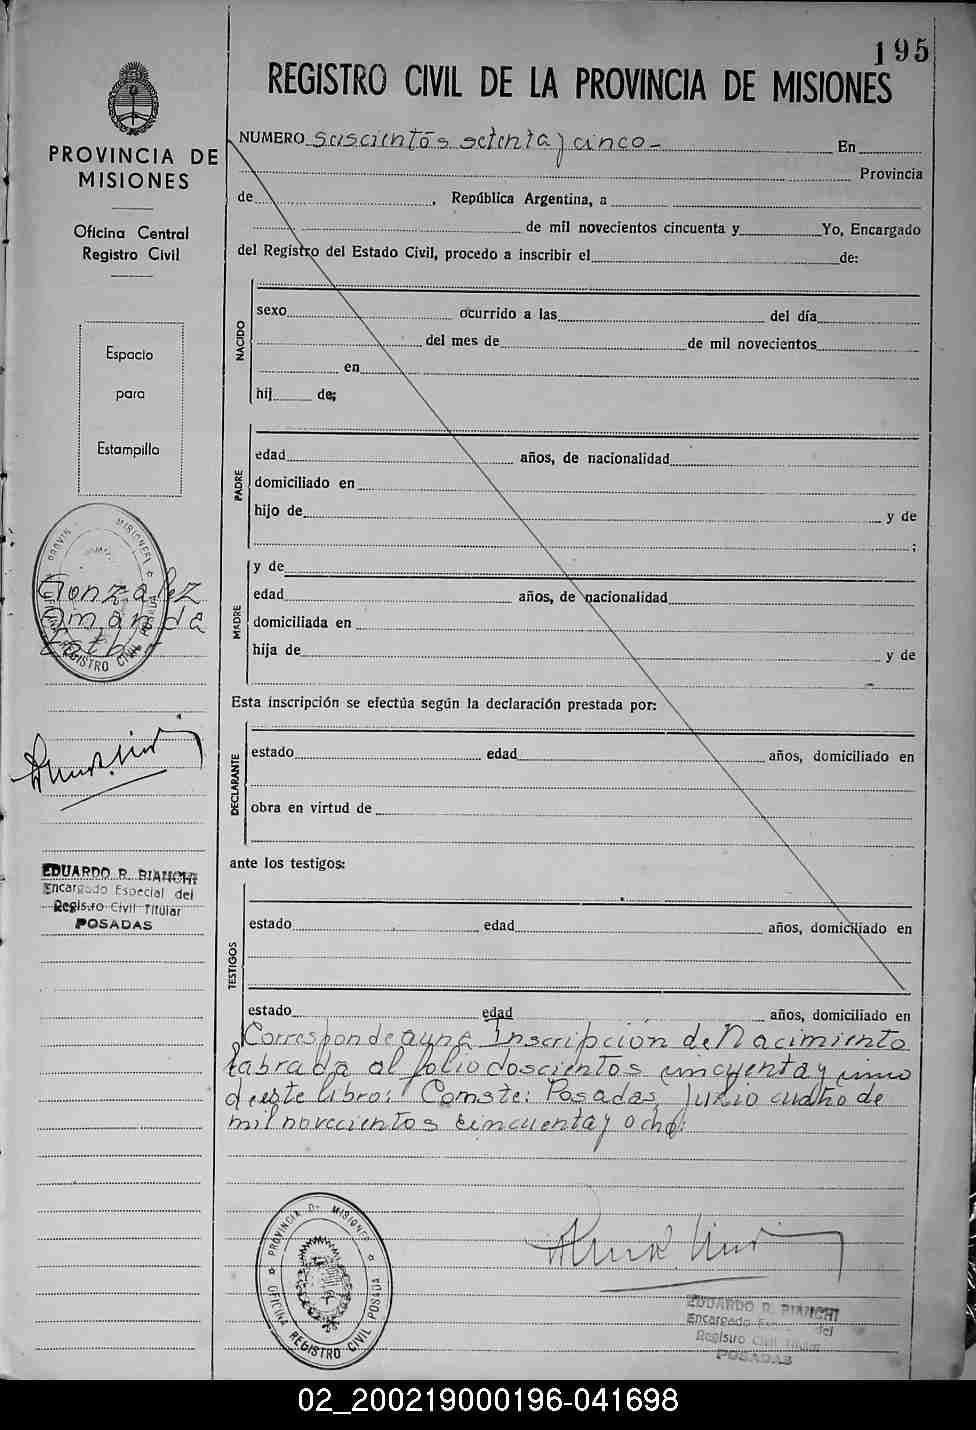 195
REGISTRO CIVIL DE LA PROVINCIA DE MISIONES
PROVINCIA DE
MISIONES
Oficina Central
Registro Civil
Espacio
para
Estampilla
Gonzalez
Amanda
EDUARDO R. BIANCHI
Encargado Especial del
Registro Civil Titular
POSADAS
NUMERO seiscientos setenta y cinco- En
Provincia
de , República Argentina, a
de mil novecientos cincuenta y Yo, Encargado
del Registro del Estado Civil, procedo a inscribir el de:
NACIDO
sexo ocurrido a las del día
del mes de de mil novecientos
en
hij de;
PADRE
edad años, de nacionalidad
domiciliado en
hijo de y de
;
MADRE
y de
edad años, de nacionalidad
domiciliada en
hija de y de
Esta inscripción se efectúa según la declaración prestada por:
DECLARANTE
estado edad años, domiciliado en
obra en virtud de
ante los testigos:
TESTIGOS
estado edad años, domiciliado en
estado edad años, domiciliado en
Corresponde a una Inscripción de Nacimiento
labrada al folio doscientos cincuenta y uno
de este libro: Comste: Posadas, Junio cuatro de
mil novecientos cincuenta y ocho.
PROVINCIA DE MISIONES
OFICINA REGISTRO CIVIL POSADA
EDUARDO R. BIANCHI
Encargado del
Registro Civil Titular
POSADAS
02_200219000196-041698